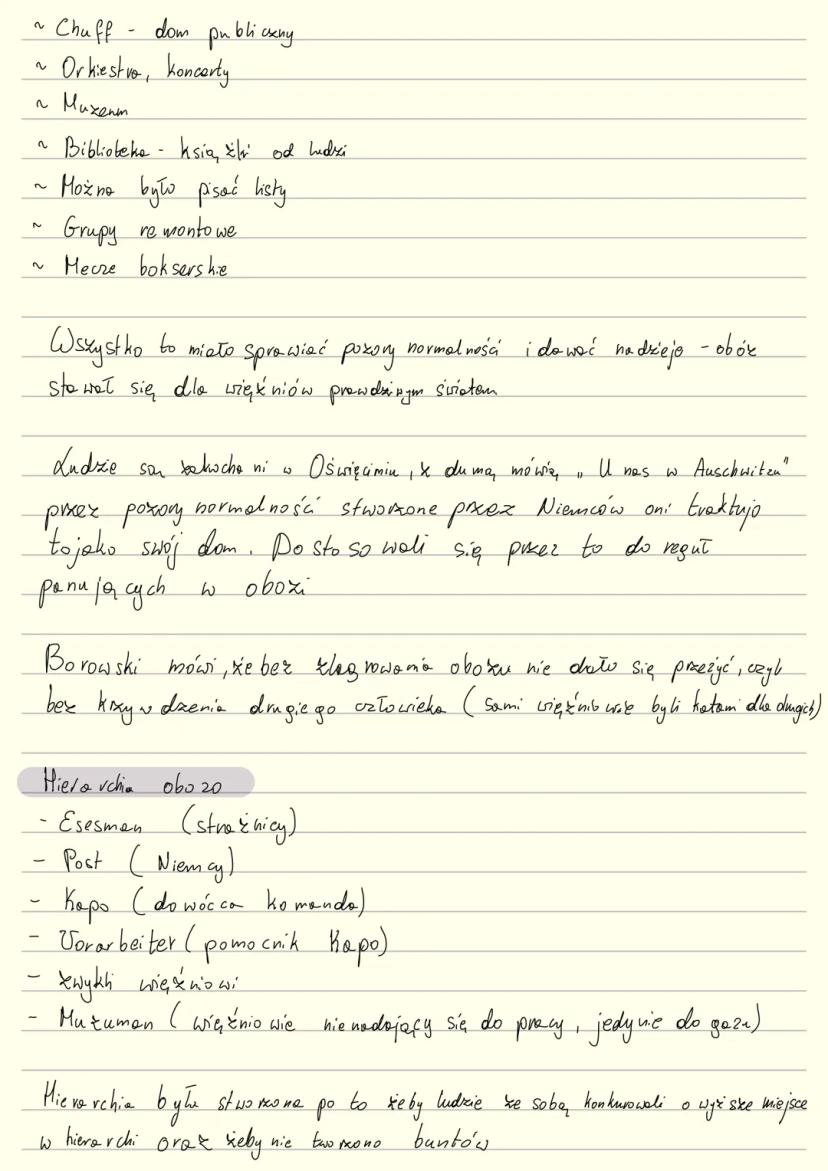 ~ Chuff - dom publiczny
~ Orkiestra, koncerty
~ Muzeum
~ Biblioteka - książki od ludzi
~ Można było pisać listy
~ Grupy remontowe
~ Mecze bokserskie
Wszystko to miało sprawiać pozory normalności i dawać nadzieje - obóz
stawał się dla więźniów prawdziwym światem
Ludzie są zakochani w Oświęcimiu, z dumą mówią „U nas w Auschwitzu"
przez pozory normalności stworzone przez Niemców oni traktują
to jako swój dom. Dostosowali się przez to do reguł
panujących w obozi
Borowski mówi, że bez zlagrowania obozu nie dało się przeżyć, czyli
bez krzywdzenia drugiego człowieka (sami więźniowie byli katami dla drugich)
Hierarchia obozo
- Esesman (strażnicy)
- Post (Niemcy)
- Kapo (dowócca komanda)
- Vorarbeiter (pomocnik Kapo)
- zwykli więźniowi
- Muzuman (więźniowie nienadający się do pracy, jedynie do gazu)
Hierarchia była stworzona po to żeby ludzie ze sobą konkurowali o wyższe miejsce
w hierarchi oraz żeby nie tworzono buntów